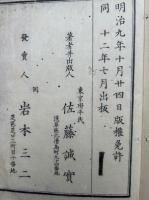 明治九年十月廿四日版權免許
同 十二年七月出板
著者幷出版人
東京府平民
佐藤誠實
發賣人
同
岩本三二